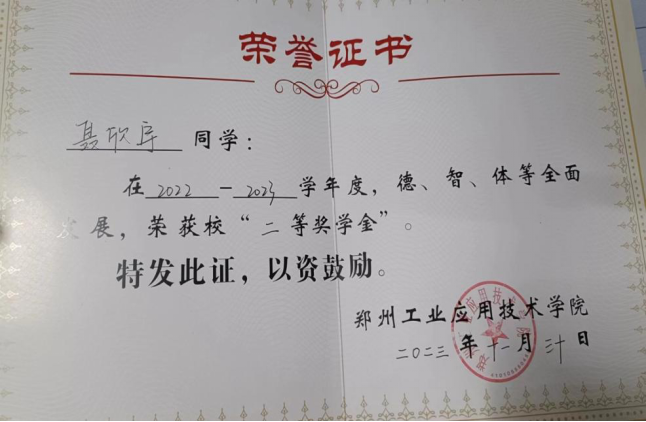 荣誉证书
聂欣宇 同学：
在 2022 - 2023 学年度，德、智、体等全面
发展，荣获校“二等奖学金”。
特发此证，以资鼓励。
郑州工业应用技术学院
二〇二三 年 十一 月 三十 日